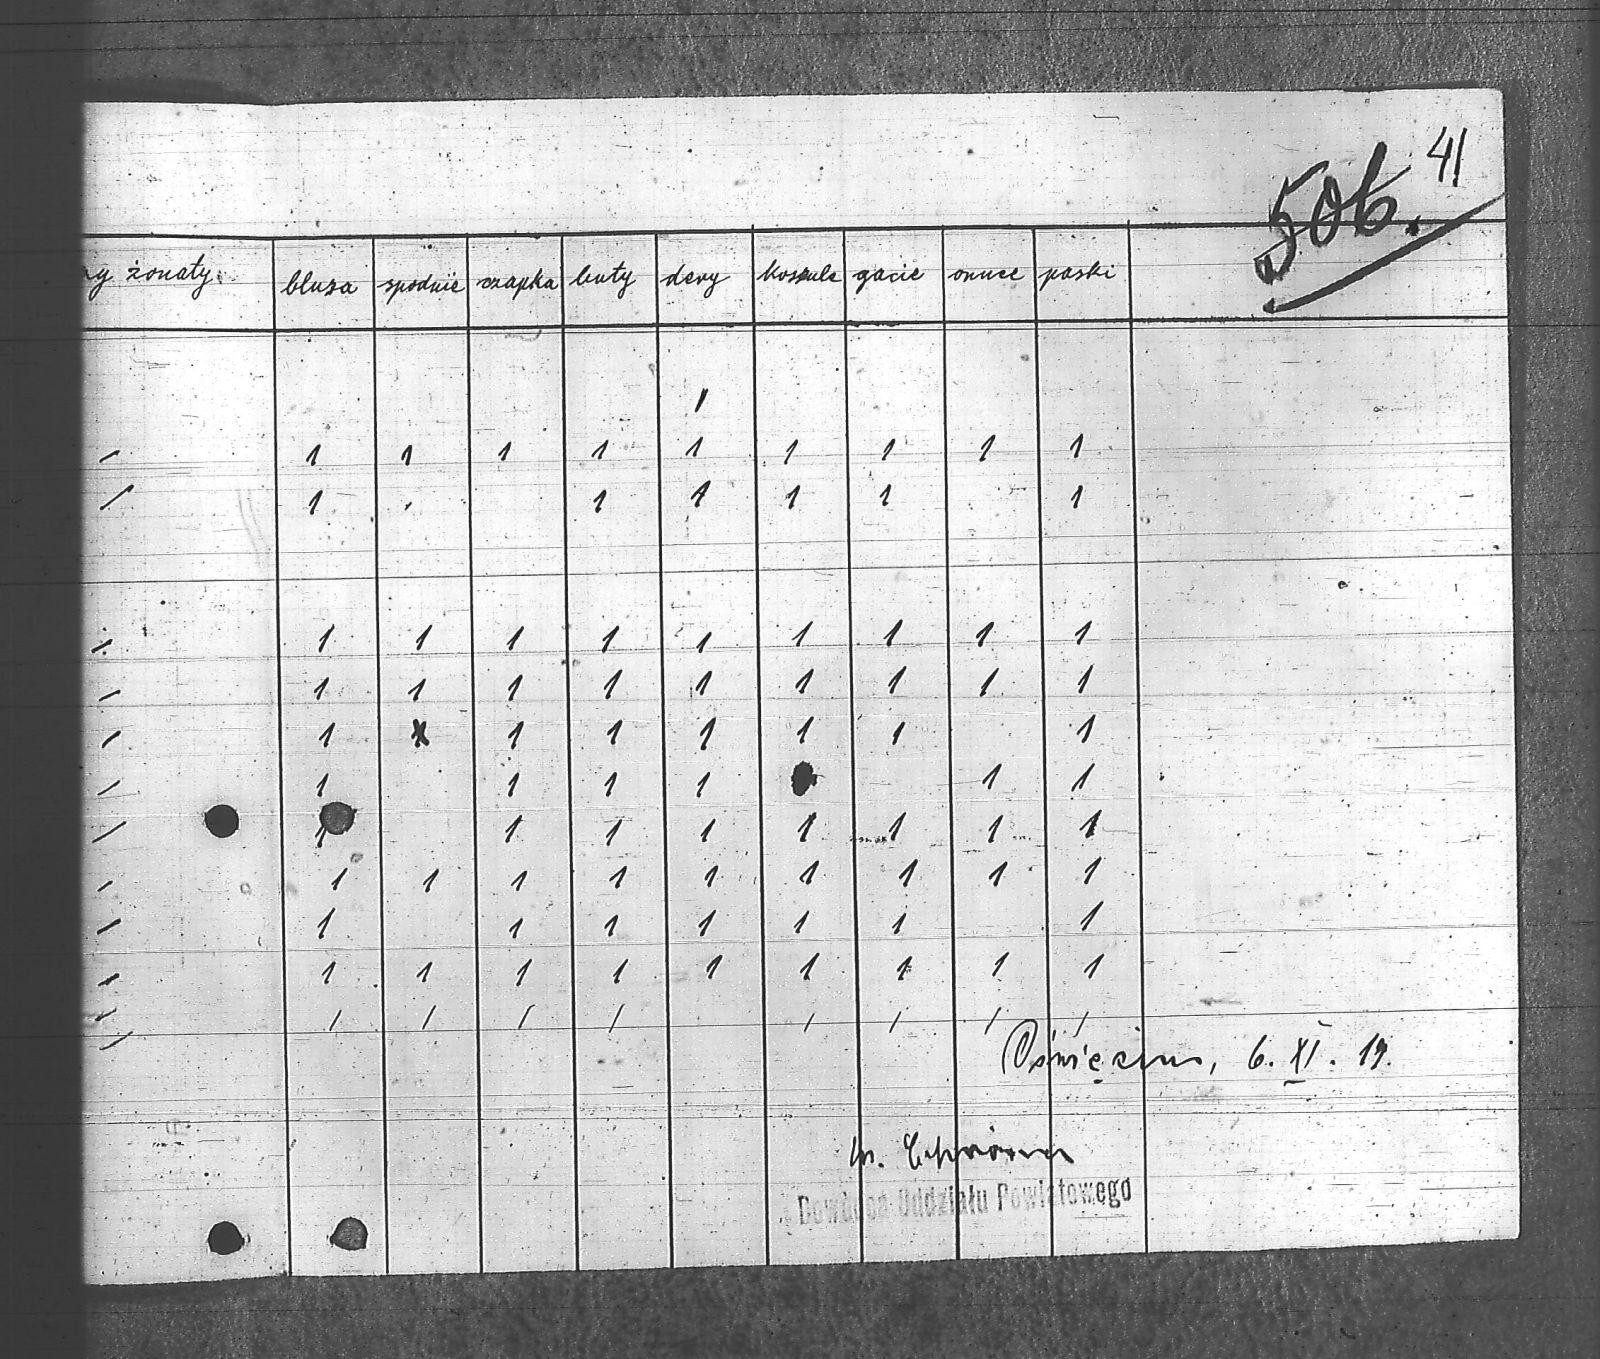 41
506.
żonaty. bluza spodnie czapka buty dery koszule gacie onuce paski
1
/ 1 1 1 1 1 1 1 1 1
/ 1 1 1 1 1 1
/ 1 1 1 1 1 1 1 1 1
/ 1 1 1 1 1 1 1 1 1
/ 1 1 1 1 1 1 1
/ 1 1 1 1 1 1
/ 1 1 1 1 1 1 1 1
/ 1 1 1 1 1 1 1 1 1
/ 1 1 1 1 1 1 1
/ 1 1 1 1 1 1 1 1 1
/ / / / / / / / /
/
Oświęcim, 6. XI. 19.
Dowódca Oddziału Powiatowego